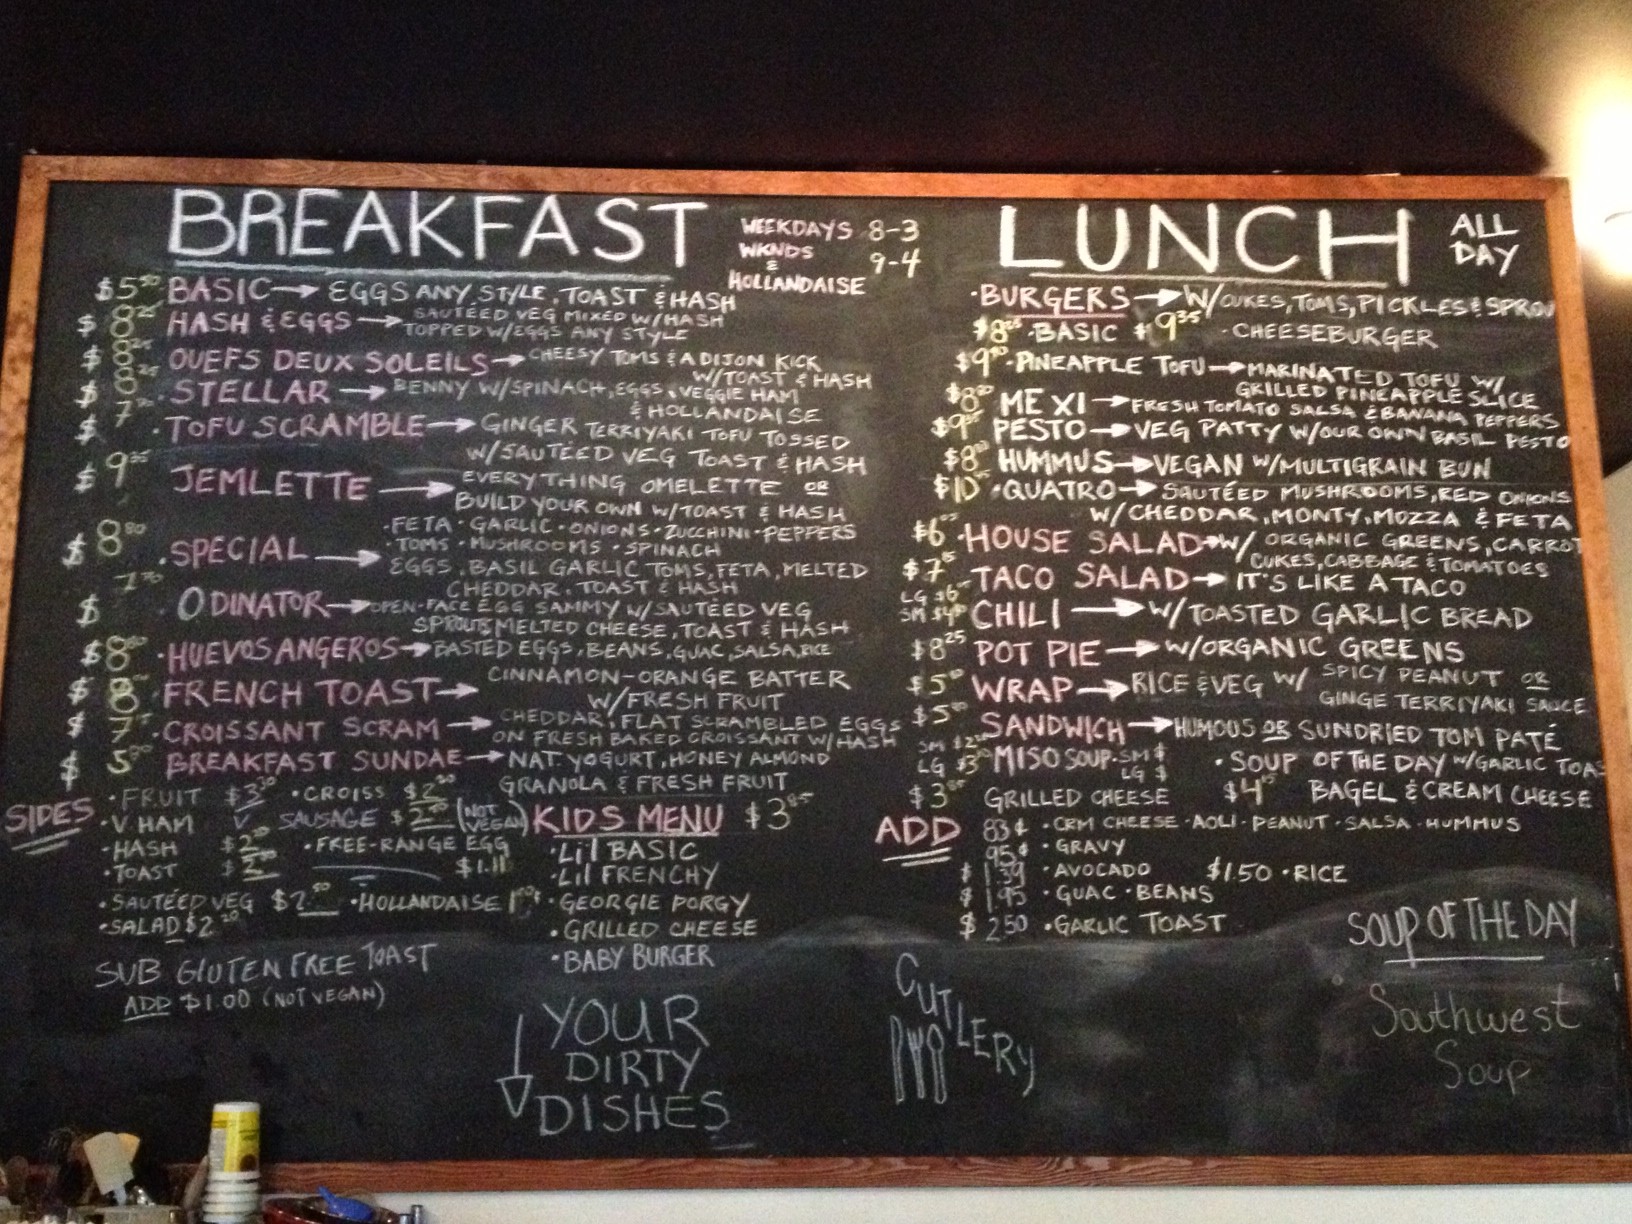 BREAKFAST
WEEKDAYS 8-3
WKNDS
&
HOLLANDAISE 9-4
BASIC → EGGS ANY STYLE, TOAST & HASH
HASH & EGGS → SAUTÉED VEG MIXED W/HASH
TOPPED W/EGGS ANY STYLE
OUEFS DEUX SOLEILS → CHEESY TOMS & A DIJON KICK
W/TOAST & HASH
STELLAR → BENNY W/SPINACH, EGGS, VEGGIE HAM
& HOLLANDAISE
TOFU SCRAMBLE → GINGER TERRIYAKI TOFU TOSSED
W/SAUTÉED VEG TOAST & HASH
$9.35 JEMLETTE → EVERYTHING OMELETTE OR
BUILD YOUR OWN W/TOAST & HASH
• FETA • GARLIC • ONIONS • ZUCCHINI • PEPPERS
• TOMS • MUSHROOMS • SPINACH
$8.80 SPECIAL → EGGS, BASIL GARLIC TOMS, FETA, MELTED
CHEDDAR, TOAST & HASH
ODINATOR → OPEN-FACE EGG SAMMY W/SAUTÉED VEG
SPROUTS MELTED CHEESE, TOAST & HASH
HUEVOS ANGEROS → BASTED EGGS, BEANS, GUAC, SALSA, RICE
FRENCH TOAST → CINNAMON-ORANGE BATTER
W/FRESH FRUIT
CROISSANT SCRAM → CHEDDAR, FLAT SCRAMBLED EGGS
ON FRESH BAKED CROISSANT W/HASH
BREAKFAST SUNDAE → NAT. YOGURT, HONEY ALMOND
GRANOLA & FRESH FRUIT
SIDES
• FRUIT • CROISS
• V. HAM SAUSAGE (NOT VEGAN)
• HASH • FREE-RANGE EGG
• TOAST $1.11
• SAUTÉED VEG • HOLLANDAISE
• SALAD
SUB GLUTEN FREE TOAST
ADD $1.00 (NOT VEGAN)
KIDS MENU $3.85
• LIL BASIC
• LIL FRENCHY
• GEORGIE PORGY
• GRILLED CHEESE
• BABY BURGER
YOUR
DIRTY
DISHES
LUNCH
ALL
DAY
• BURGERS → W/CUKES, TOMS, PICKLES & SPROU
• BASIC $9.35 • CHEESEBURGER
• PINEAPPLE TOFU → MARINATED TOFU W/
GRILLED PINEAPPLE SLICE
MEXI → FRESH TOMATO SALSA & BANANA PEPPERS
PESTO → VEG PATTY W/OUR OWN BASIL PESTO
HUMMUS → VEGAN W/MULTIGRAIN BUN
• QUATRO → SAUTÉED MUSHROOMS, RED ONIONS
W/CHEDDAR, MONTY, MOZZA & FETA
HOUSE SALAD → W/ ORGANIC GREENS, CARROT
CUKES, CABBAGE & TOMATOES
TACO SALAD → IT'S LIKE A TACO
CHILI → W/TOASTED GARLIC BREAD
$8.25 POT PIE → W/ORGANIC GREENS
WRAP → RICE & VEG W/ SPICY PEANUT OR
GINGE TERRIYAKI SAUCE
SANDWICH → HUMOUS OR SUNDRIED TOM PATÉ
MISO SOUP • SM $ • SOUP OF THE DAY W/GARLIC TOAS
LG $
GRILLED CHEESE BAGEL & CREAM CHEESE
ADD
83¢ • CRM CHEESE • AOLI • PEANUT • SALSA • HUMMUS
95¢ • GRAVY
$1.39 • AVOCADO $1.50 • RICE
$1.95 • GUAC • BEANS
$2.50 • GARLIC TOAST
CUTLERY
SOUP OF THE DAY
Southwest
Soup